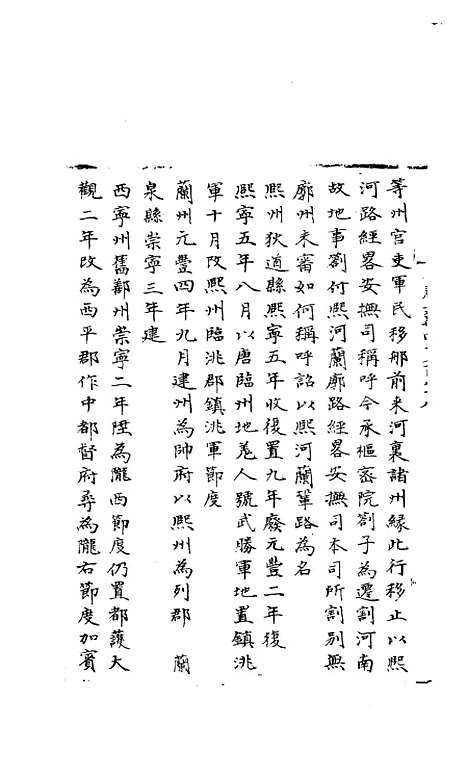 等州官吏軍民移那前来河裏諸州縁此行移止以熙
河路經畧安撫司稱呼今承樞宻院劄子為遷割河南
故地事劄付熙河蘭廓路經畧安撫司本司所割别無
廓州未審如何稱呼詔以熙河蘭鞏路為名
熙州狄道縣熙寧五年收復置九年廢元豐二年復
熙寧五年八月以唐臨州地羌人號武勝軍地置鎮洮
軍十月改熙州臨洮郡鎮洮軍節度
蘭州元豐四年九月建州為帥府以熙州為列郡　蘭
泉縣崇寧三年建
西寧州舊鄯州崇寧二年陞為隴西節度仍置都護大
觀二年改為西平郡作中都督府尋為隴右節度加賓